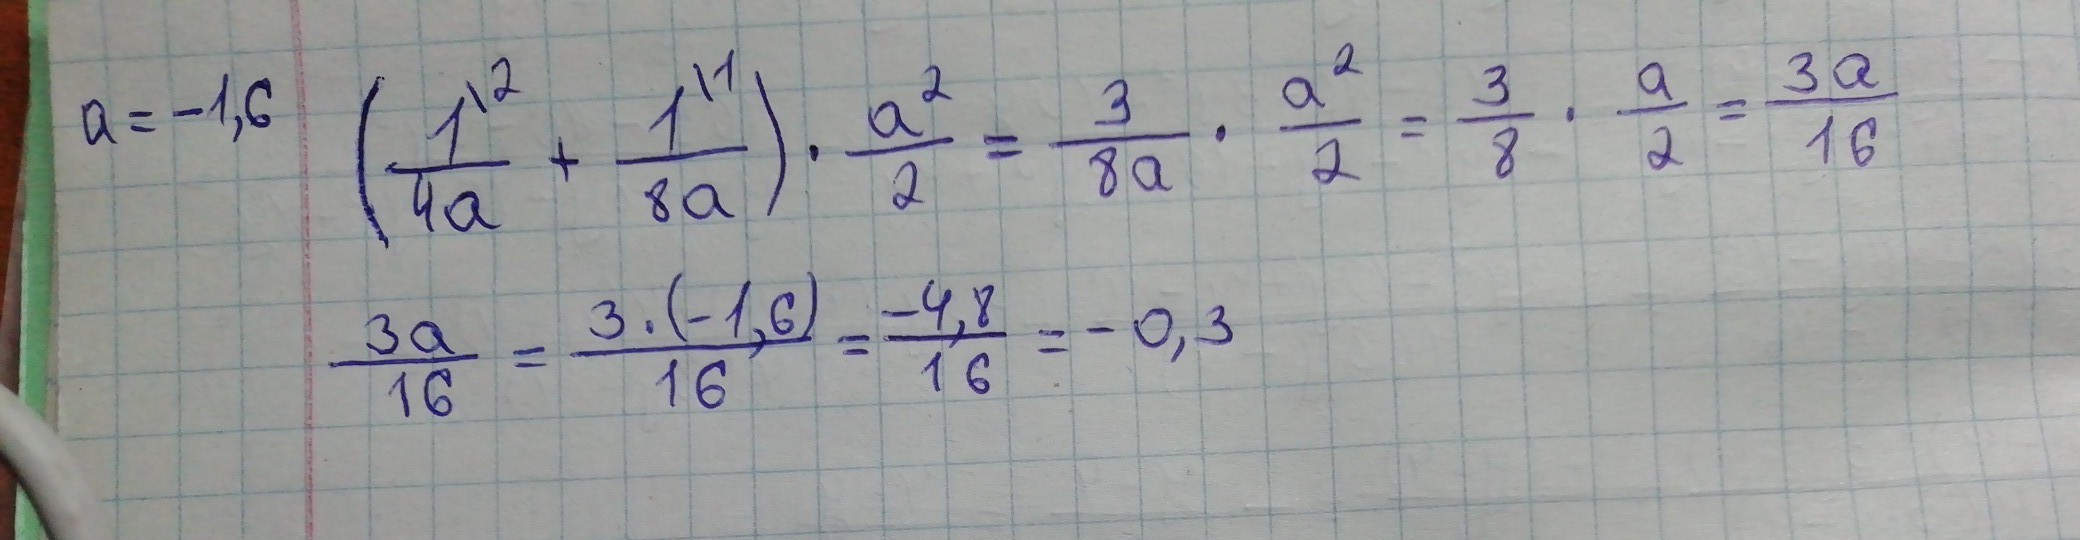 a = -1,6 (1\2/4a + 1\1/8a) · a²/2 = 3/8a · a²/2 = 3/8 · a/2 = 3a/16
3a/16 = 3·(-1,6)/16 = -4,8/16 = -0,3